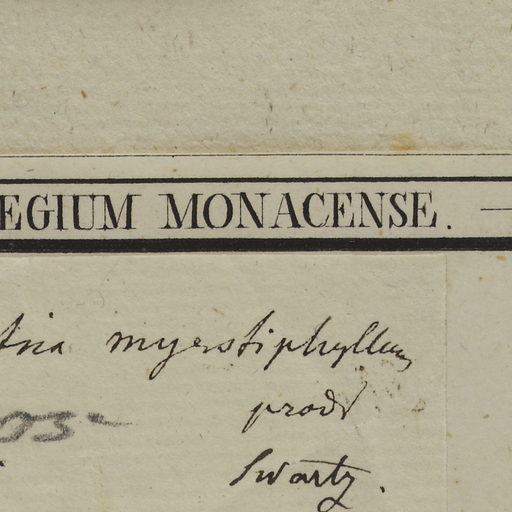 EGIUM MONACENSE. —
tria myrstiphyllum
prodr
Swartz.